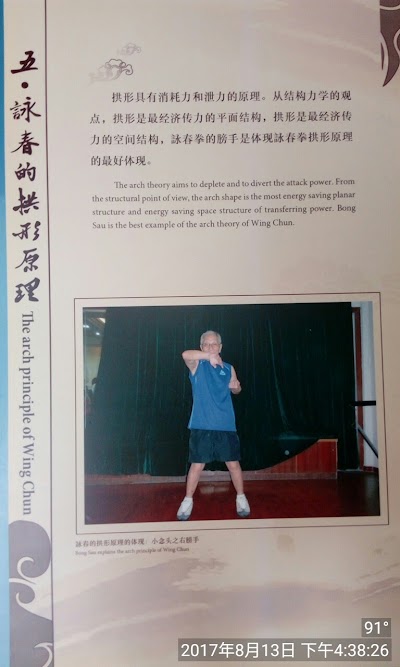 五·詠春的拱形原理
The arch principle of Wing Chun
拱形具有消耗力和泄力的原理。从结构力学的观
点，拱形是最经济传力的平面结构，拱形是最经济传
力的空间结构，詠春拳的膀手是体现詠春拳拱形原理
的最好体现。
The arch theory aims to deplete and to divert the attack power. From
the structural point of view, the arch shape is the most energy saving planar
structure and energy saving space structure of transferring power. Bong
Sau is the best example of the arch theory of Wing Chun.
詠春的拱形原理的体现：小念头之右膀手
Bong Sau explains the arch principle of Wing Chun
91°
2017年8月13日 下午4:38:26